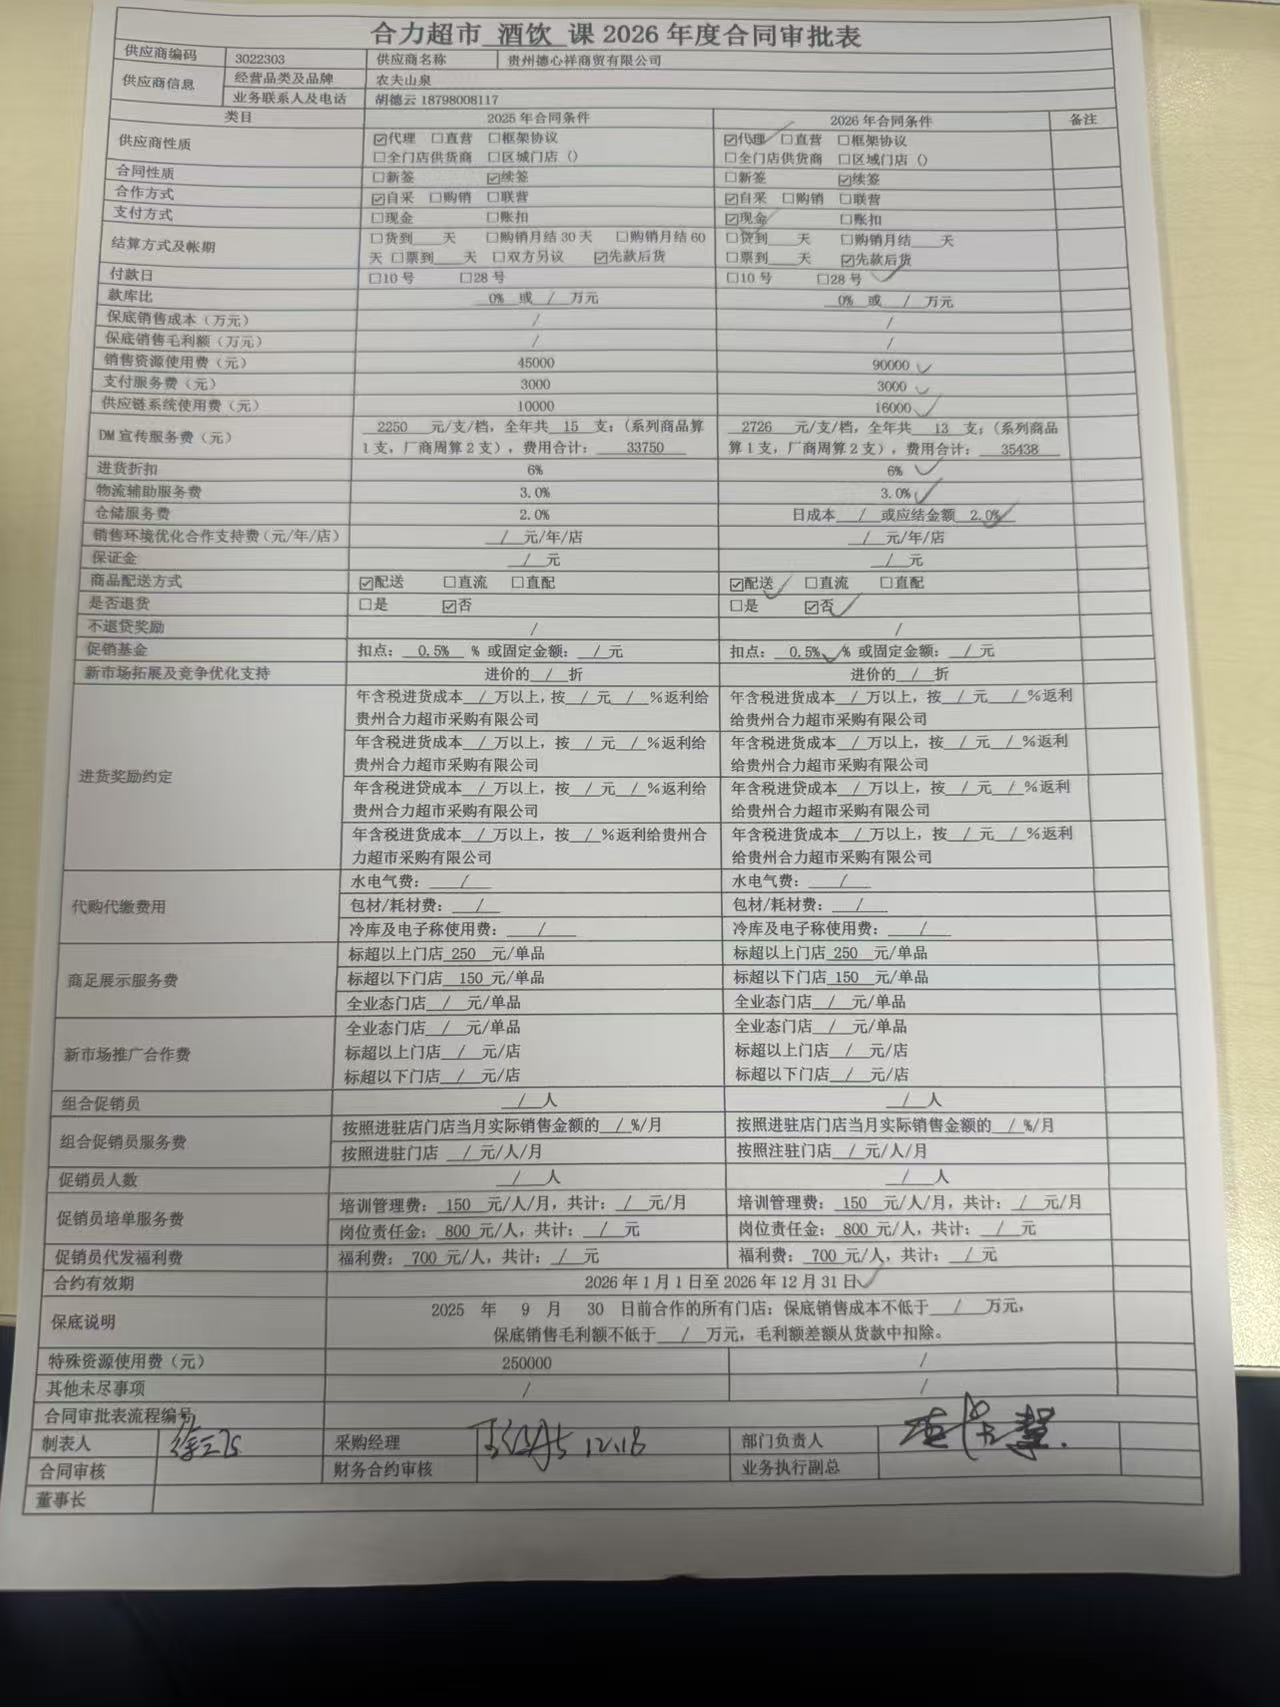 合力超市 酒饮 课 2026 年度合同审批表
供应商编码 3022303 供应商名称 贵州德心祥商贸有限公司
供应商信息 经营品类及品牌 农夫山泉
业务联系人及电话 胡德云 18798008117
类目 2025 年合同条件 2026 年合同条件 备注
供应商性质 ☑代理 □直营 □框架协议 ☑代理 □直营 □框架协议
□全门店供货商 □区城门店() □全门店供货商 □区域门店()
合同性质 □新签 ☑续签 □新签 ☑续签
合作方式 ☑自采 □购销 □联营 ☑自采 □购销 □联营
支付方式 □现金 □账扣 ☑现金 □账扣
结算方式及帐期 □货到___天 □购销月结 30 天 □购销月结 60 □货到___天 □购销月结___天
天 □票到___天 □双方另议 ☑先款后货 □票到___天 ☑先款后货
付款日 □10 号 □28 号 □10 号 □28 号
款库比 0% 或 / 万元 0% 或 / 万元
保底销售成本(万元) / /
保底销售毛利额(万元) / /
销售资源使用费(元) 45000 90000
支付服务费(元) 3000 3000
供应链系统使用费(元) 10000 16000
DM 宣传服务费(元) 2250 元/支/档,全年共 15 支;(系列商品算 2726 元/支/档,全年共 13 支;(系列商品
1 支,厂商周算 2 支),费用合计: 33750 算 1 支,厂商周算 2 支),费用合计: 35438
进货折扣 6% 6%
物流辅助服务费 3.0% 3.0%
仓储服务费 2.0% 日成本 / 或应结金额 2.0%
销售环境优化合作支持费(元/年/店) / 元/年/店 / 元/年/店
保证金 / 元 / 元
商品配送方式 ☑配送 □直流 □直配 ☑配送 □直流 □直配
是否退货 □是 ☑否 □是 ☑否
不退贷奖励 / /
促销基金 扣点: 0.5% % 或固定金额: / 元 扣点: 0.5% % 或固定金额: / 元
新市场拓展及竞争优化支持 进价的 / 折 进价的 / 折
进货奖励约定 年含税进货成本 / 万以上,按 / 元 / %返利给 年含税进货成本 / 万以上,按 / 元 / %返利
贵州合力超市采购有限公司 给贵州合力超市采购有限公司
年含税进货成本 / 万以上,按 / 元 / %返利给 年含税进货成本 / 万以上,按 / 元 / %返利
贵州合力超市采购有限公司 给贵州合力超市采购有限公司
年含税进贷成本 / 万以上,按 / 元 / %返利给 年含税进贷成本 / 万以上,按 / 元 / %返利
贵州合力超市采购有限公司 给贵州合力超市采购有限公司
年含税进货成本 / 万以上,按 / %返利给贵州合 年含税进货成本 / 万以上,按 / 元 / %返利
力超市采购有限公司 给贵州合力超市采购有限公司
代购代缴费用 水电气费: / 水电气费: /
包材/耗材费: / 包材/耗材费: /
冷库及电子称使用费: / 冷库及电子称使用费: /
商足展示服务费 标超以上门店 250 元/单品 标超以上门店 250 元/单品
标超以下门店 150 元/单品 标超以下门店 150 元/单品
全业态门店 / 元/单品 全业态门店 / 元/单品
新市场推广合作费 全业态门店 / 元/单品 全业态门店 / 元/单品
标超以上门店 / 元/店 标超以上门店 / 元/店
标超以下门店 / 元/店 标超以下门店 / 元/店
组合促销员 / 人 / 人
组合促销员服务费 按照进驻店门店当月实际销售金额的 / %/月 按照进驻店门店当月实际销售金额的 / %/月
按照进驻门店 / 元/人/月 按照注驻门店 / 元/人/月
促销员人数 / 人 / 人
促销员培单服务费 培训管理费: 150 元/人/月,共计: / 元/月 培训管理费: 150 元/人/月,共计: / 元/月
岗位责任金: 800 元/人,共计: / 元 岗位责任金: 800 元/人,共计: / 元
促销员代发福利费 福利费: 700 元/人,共计: / 元 福利费: 700 元/人,共计: / 元
合约有效期 2026 年 1 月 1 日至 2026 年 12 月 31 日
保底说明 2025 年 9 月 30 日前合作的所有门店;保底销售成本不低于 / 万元,
保底销售毛利额不低于 / 万元,毛利额差额从货款中扣除。
特殊资源使用费(元) 250000 /
其他未尽事项 / /
合同审批表流程编号
制表人 采购经理 12.18 部门负责人
合同审核 财务合约审核 业务执行副总
董事长